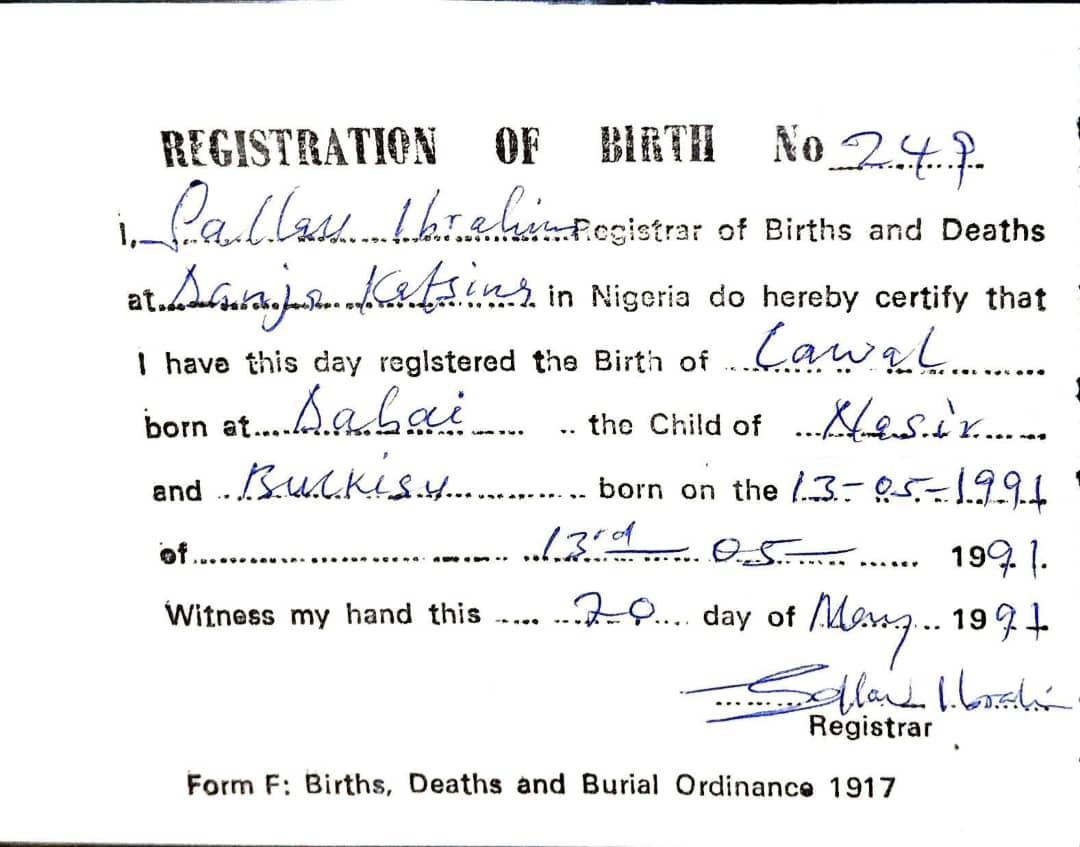 REGISTRATION OF BIRTH No 248
I, Sallau Ibrahim Registrar of Births and Deaths
at Danja Katsina in Nigeria do hereby certify that
I have this day registered the Birth of Lawal
born at Dabai the Child of Nasir
and Bulkisu born on the 13-05-1991
of 13rd 05 1991.
Witness my hand this 20 day of May 1991
Ibrahim
Registrar
Form F: Births, Deaths and Burial Ordinance 1917